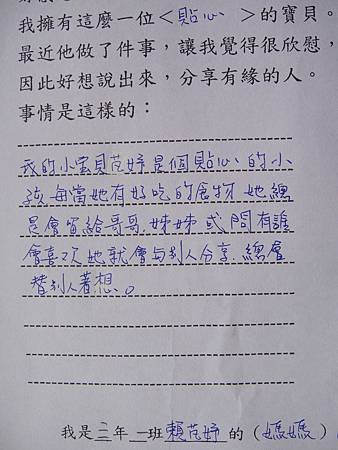 我擁有這麼一位＜貼心＞的寶貝。
最近他做了件事，讓我覺得很欣慰，
因此好想說出來，分享有緣的人。
事情是這樣的：
我的小寶貝范妤是個貼心的小
孩每當她有好吃的食物她總
是會留給哥哥.妹妹或問有誰
會喜歡她就會与别人分享.總會
替别人著想。
我是三年一班賴范妤的（媽媽）